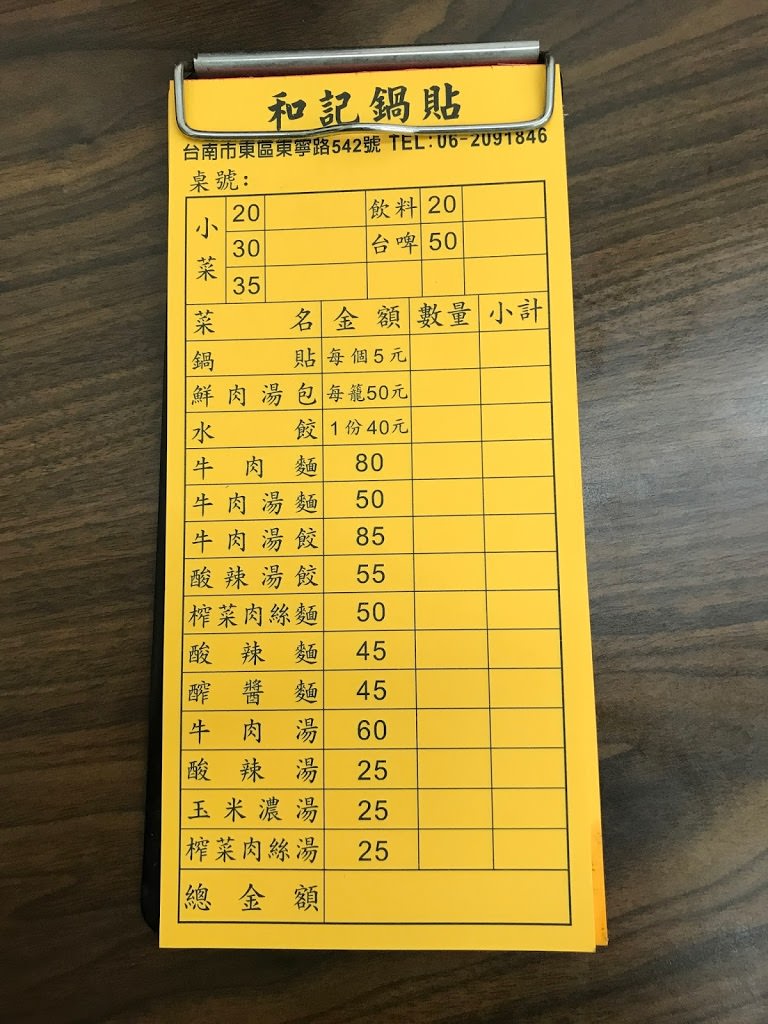 和記鍋貼
台南市東區東寧路542號 TEL:06-2091846
桌號:
小菜 20 飲料 20
30 台啤 50
35
菜名 金額 數量 小計
鍋貼 每個5元
鮮肉湯包 每籠50元
水餃 1份40元
牛肉麵 80
牛肉湯麵 50
牛肉湯餃 85
酸辣湯餃 55
榨菜肉絲麵 50
酸辣麵 45
醡醬麵 45
牛肉湯 60
酸辣湯 25
玉米濃湯 25
榨菜肉絲湯 25
總金額